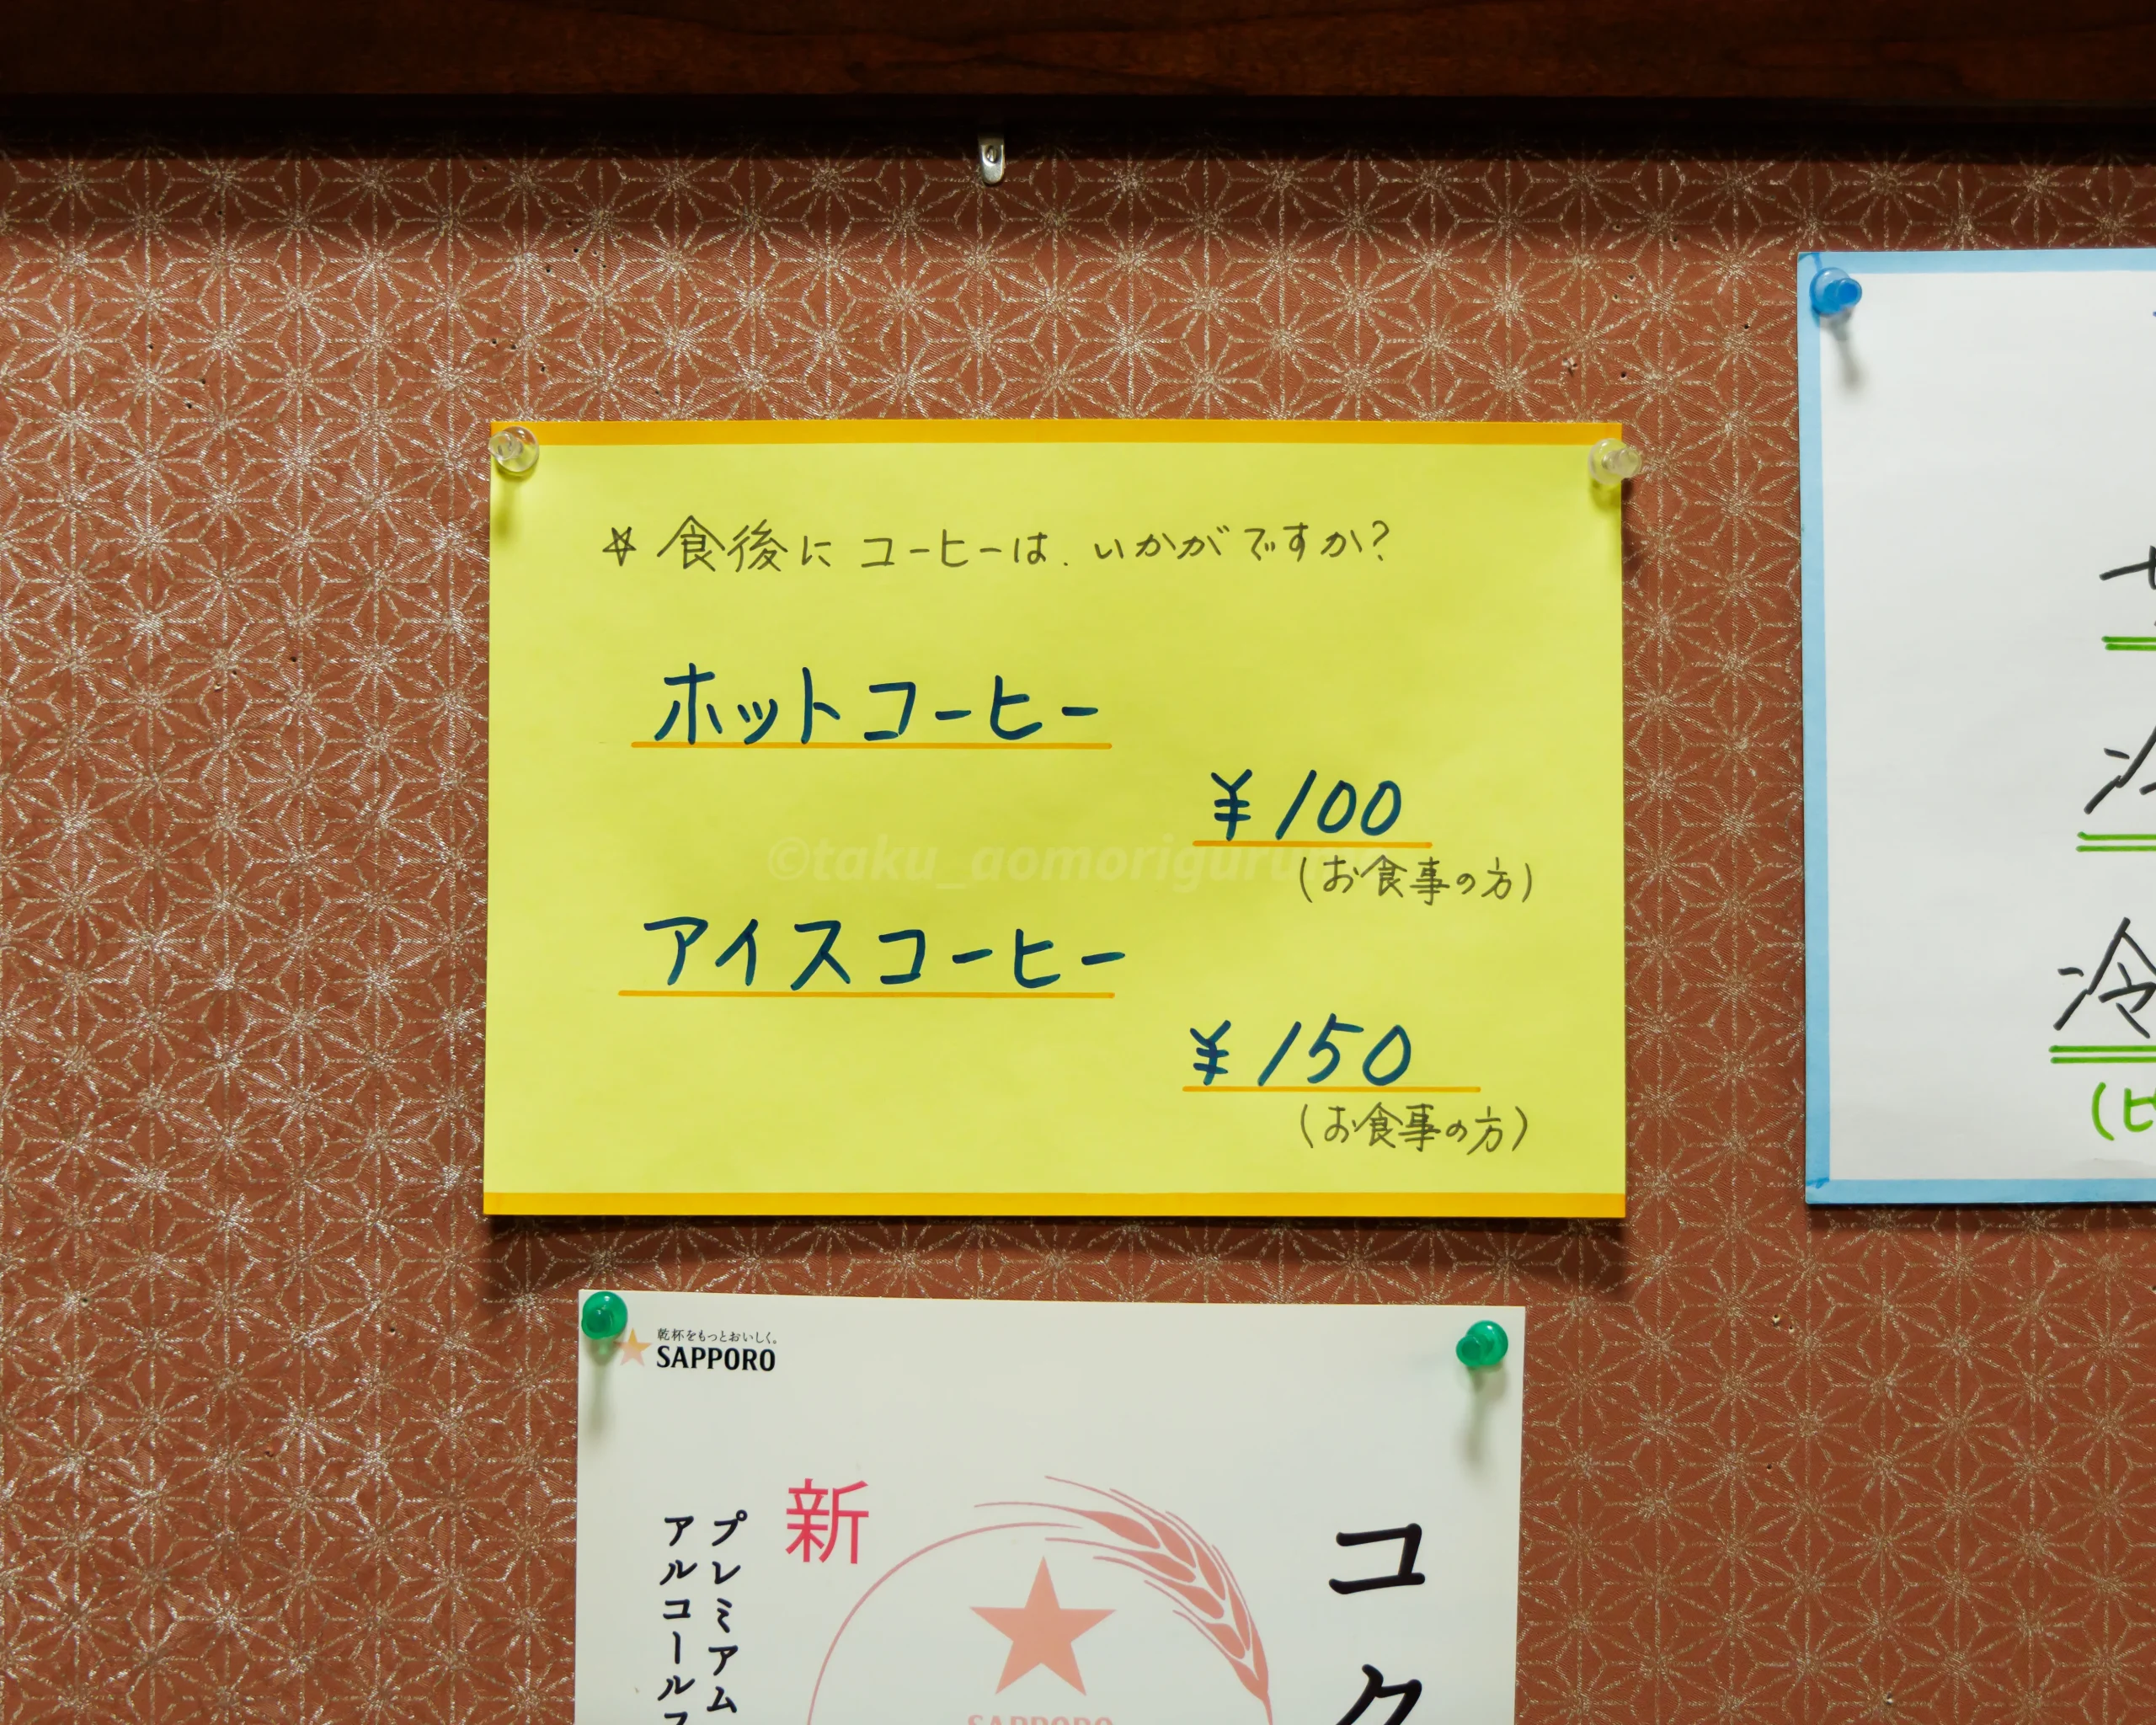 ☆ 食後に コーヒーは、いかがですか?
ホットコーヒー
¥100
(お食事の方)
アイスコーヒー
¥150
(お食事の方)
©taku_aomorigurume
冷
乾杯をもっとおいしく。
SAPPORO
新
プレミアム
アルコール
コク
SAPPORO